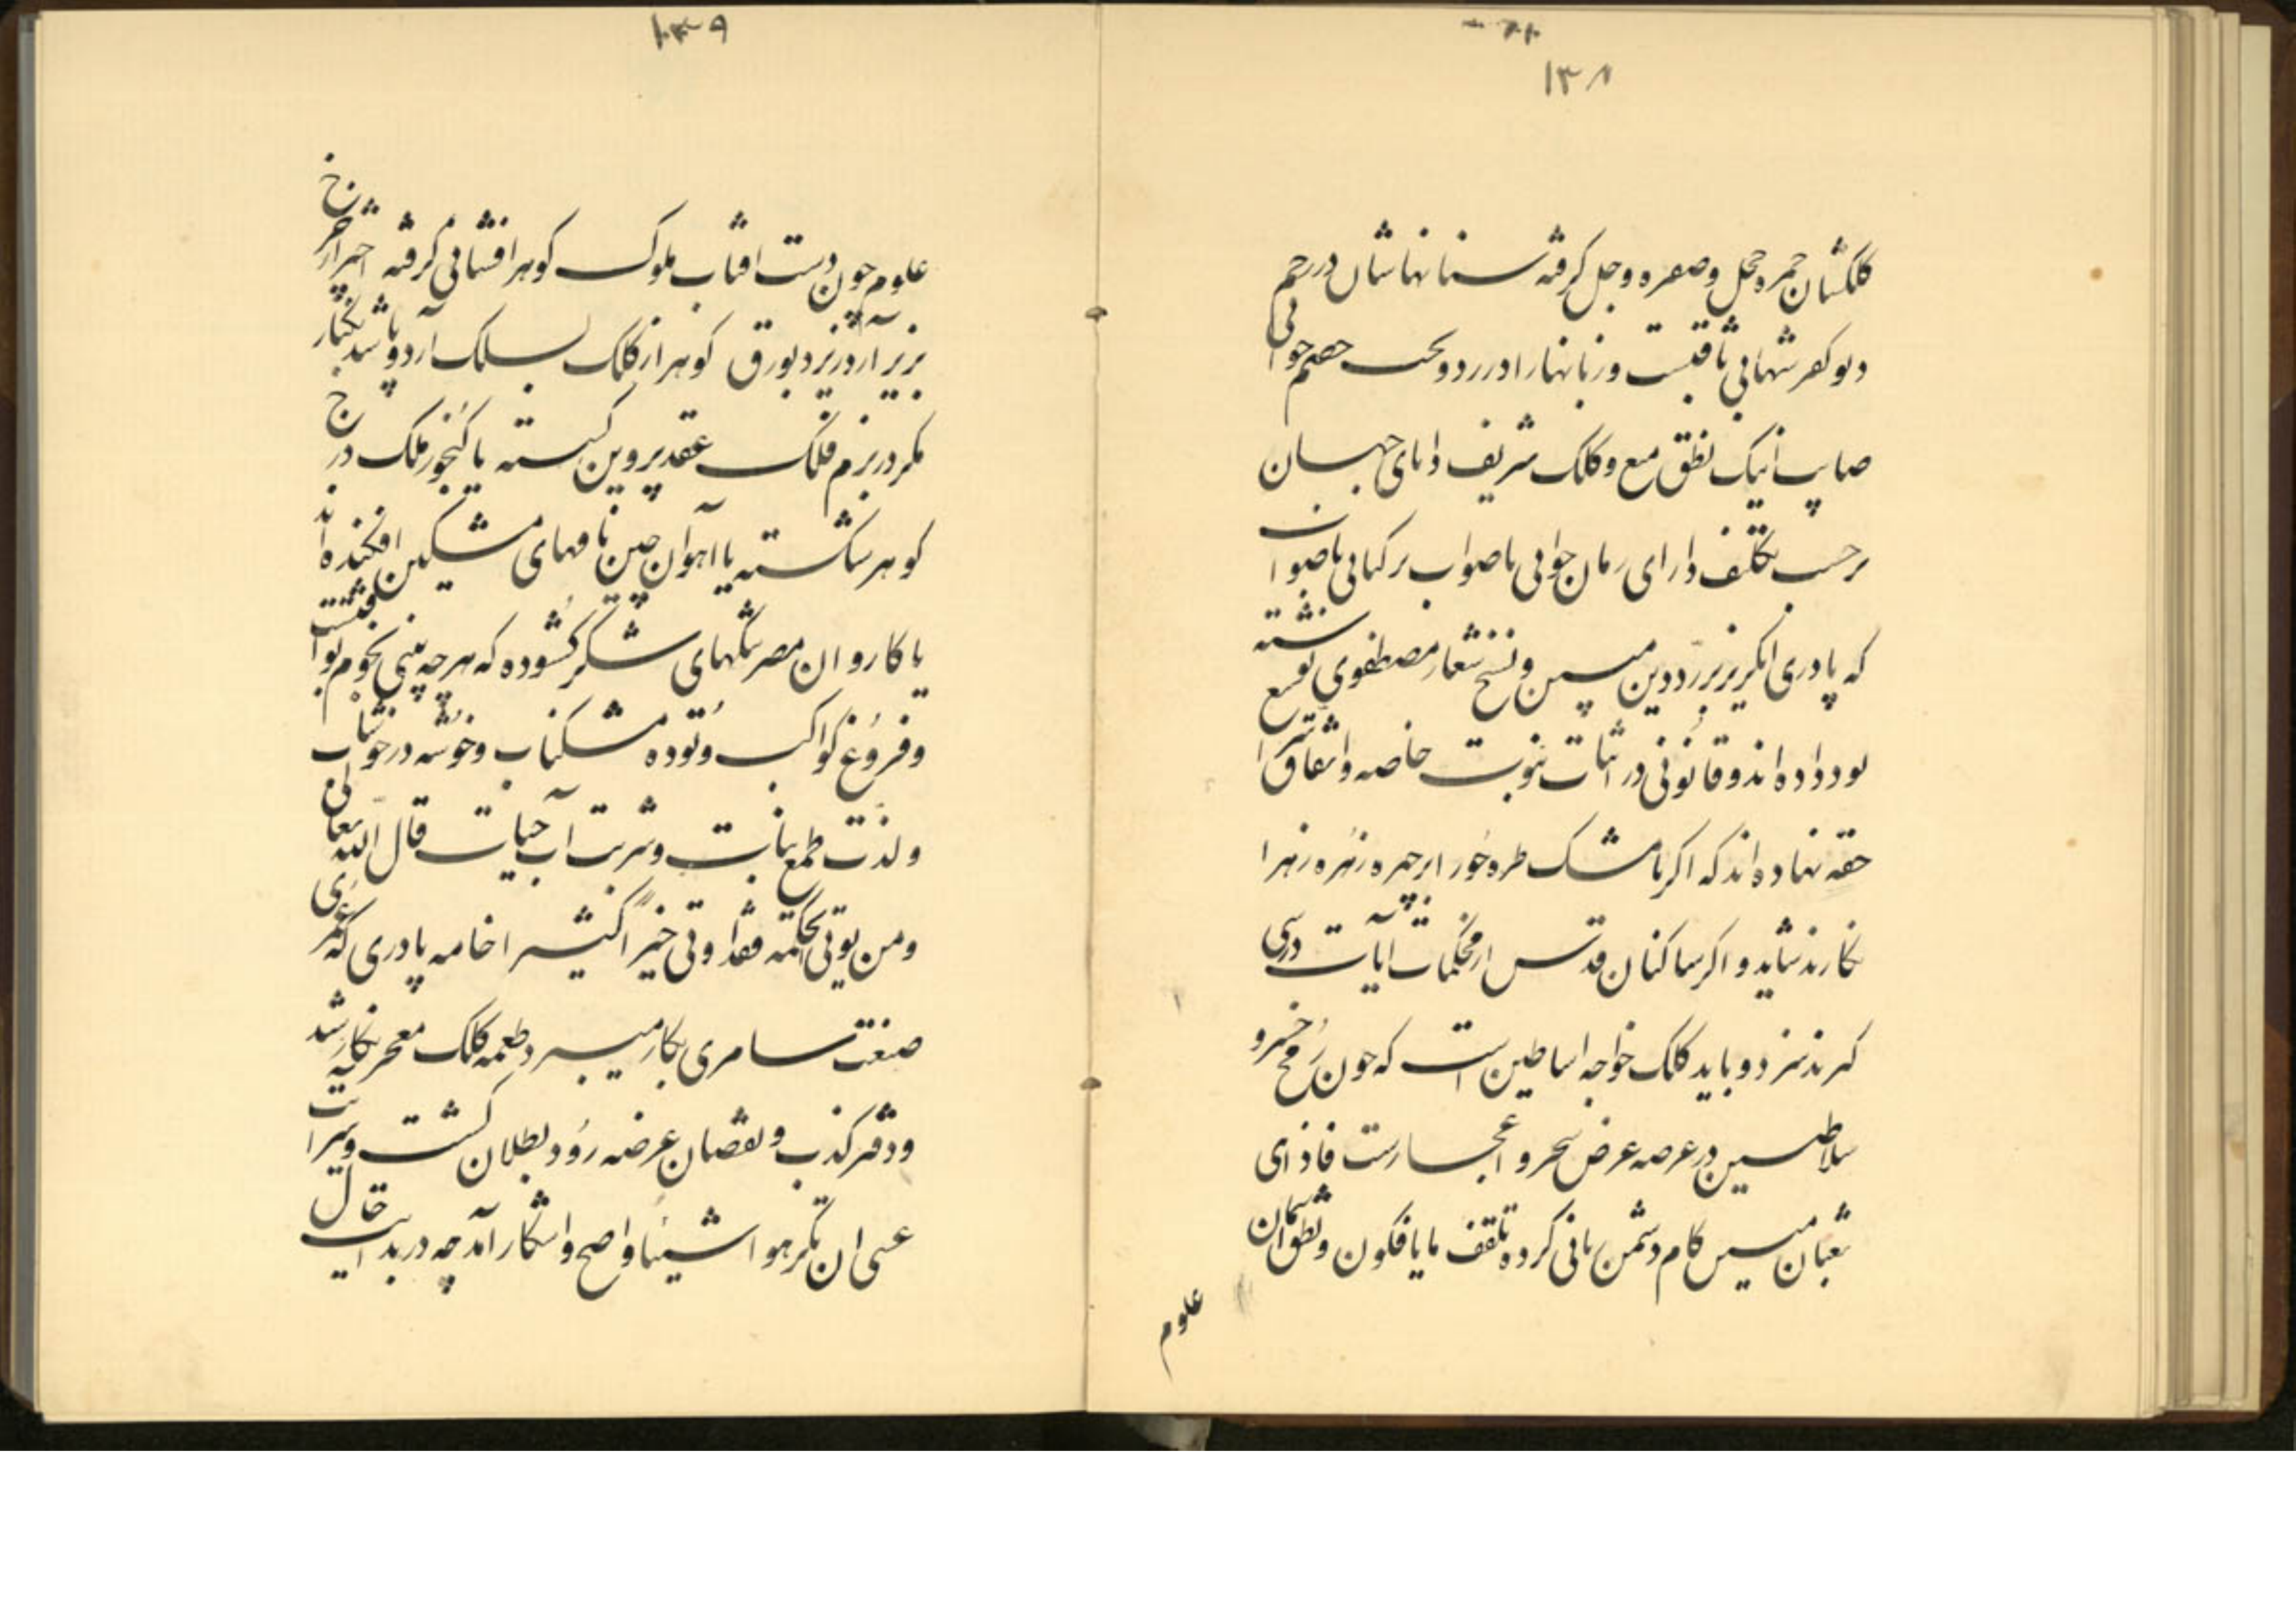 ۱۳۸
کلکشان حمره خجل و صفره وجل گرفته سنانهاشان در رحم
دیو کفر شهابی ثاقبست و زبانهارا در رد و بحث خصم جوابی
صایب اینک نطق منیع و کلک شریف دانای جهان
برحسب تکلیف دارای زمان جوابی باصواب بر کتابی ناصواب
که پادری انگریز بر رد دین مبین و نسخ شعار مصطفوی نوشته
بود داده اند و قانونی در اثبات نبوت خاصه و
حقه نهاده اند که اگر با مشک طره حور بر چهره زهره زهرا
نگارند شاید و اگر ساکنان قدس از محکمات آیات درسی
گیرند سزد و باید کلک خواجه اساطین است که چون رمح خسرو
سلاطین در عرصه عرض سحر و اعجاز است فاذا هی
ثعبان مبین کام دشمن کرده تلقف ما یافکون و نطقشان
علوم
۱۳۹
علوم چون دست افتاب ملوک کوهر افشانی گرفته
بزیر آرد ریزد بورق کوهر از کلک بسلک آرد و پاشد بکنار
مگر در بزم فلک عقد پروین گسسته یا گنجور ملک درج
کوهر شکسته یا اهوان چین نافهای مشکین افکنده اند
یا کاروان مصر تنگهای شکر گشوده که هر چه بینی نجوم ثواقبست
و فروغ کواکب و توده مشکناب و خوشه در خوشاب
و لذت طمع نبات و شربت آب حیات قال الله تعالی
و من یوتی الحکمه فقد اوتی خیرا کثیرا خامه پادری که عمری
صنعت سامری بکار میبرد طعمه کلک معجز نگار شد
و دفتر کذب و نقصان عرضه رد و بطلان گشت و سرایت
عسی ان تکرهوا شیئا واضح و اشکار آمد چه در بدایت حال